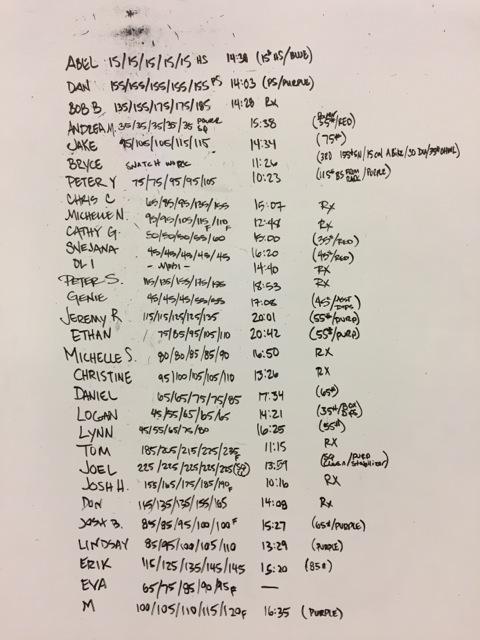 ABEL 15/15/15/15/15 HS 14:38 (15# HS/BLUE)
DAN 155/155/155/155/155 PS 14:03 (PS/PURPLE)
BOB B. 135/155/175/175/185 14:28 RX
ANDREA M. 35/35/35/35/35 POWER 15:38 (35#/RED)
JAKE 95/105/105/115/115 14:34 (75#)
BRYCE SNATCH 11:26
PETER Y 75/75/95/95/105 10:23
CHRIS C 65/85/95/135/155 15:07 RX
MICHELLE N. 95/95/105/115F/110F 12:48 RX
CATHY G. 50/50/50/55/60 15:00 (35#/RED)
SNEJANA 45/45/45/45/45 16:20 (45#/RED)
OLI 14:40 RX
PETER S. 18:53 RX
GENIE 45/45/45/55/55 17:08
JEREMY R 115/115/125/125/135 20:01 (55#/PURP)
ETHAN 75/85/95/105/110 20:42 (55#/PURP)
MICHELLE S. 80/80/85/85/90 16:50 RX
CHRISTINE 95/100/105/105/110 13:26 RX
DANIEL 65/65/75/75/85 17:34 (65#)
LOGAN 45/55/65/65/65 14:21
LYNN 45/55/65/75/80 16:25 (55#)
TOM 185/205/215/275/235F 11:15 RX
JOEL 225/225/225/225/225 13:59
JOSH H. 155/165/175/185/190F 10:16 RX
DON 115/135/135/155/165 14:08 RX
JOSH B. 85/85/95/100/100F 15:27 (65#/PURPLE)
LINDSAY 85/95/100/105/110 13:29 (PURPLE)
ERIK 115/125/135/145/145 15:20 (85#)
EVA 65/75/85/90/95F —
M 100/105/110/115/120F 16:35 (PURPLE)